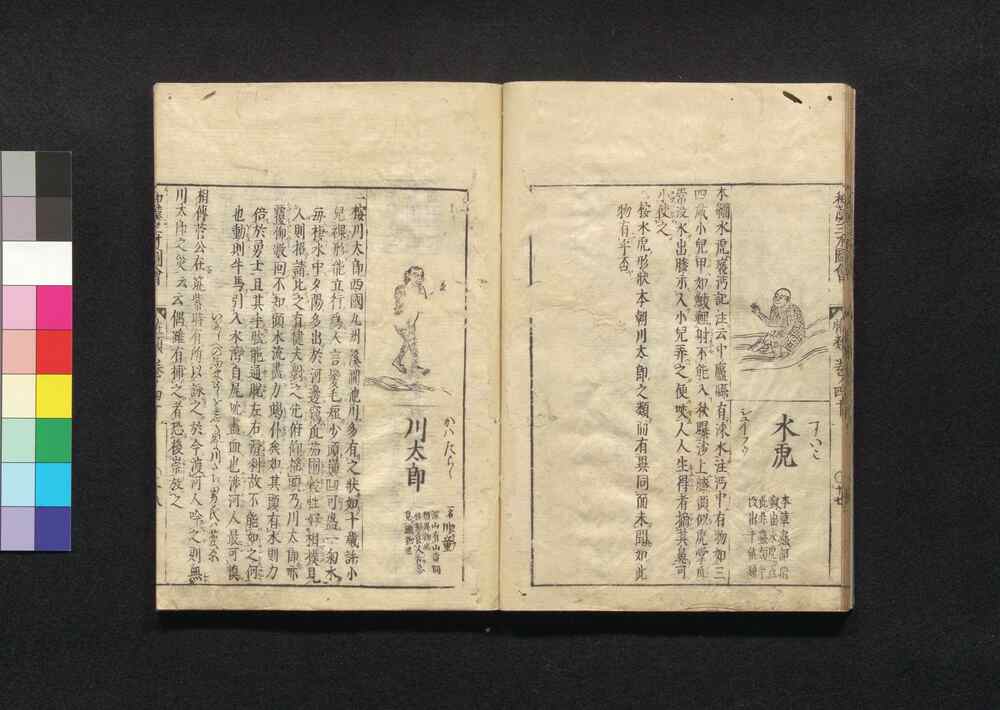 和漢三才圖會
水虎
すいこ
シュイフウ
本綱水虎襄沔記注云中廬縣有涑水注沔中有物如三
四歲小兒甲如鯪鯉射不能入秋曝沙上膝頭似虎掌爪
常沒水出膝示人小兒弄之便咬人人生得者摘其鼻可
小使之
△按水虎形狀本朝川太郎之類而有異同而未聞如此
物有乎否
川太郎
かはたらう
一名川童
△按川太郎西國九州溪澗池川多有之狀如十歲許小
兒裸形能立行為人言髮毛短少頭巓凹可盛一匊水
每棲水中夕陽多出於河邊竊瓜茄圃穀性好相撲見
人則招請比之有健夫對之先俯仰搖頭乃川太郎亦
覆仰數回不知頭水流盡力竭仆矣如其頭有水則力
倍於勇士且其手肱能通脫左右滑利故不能如之何
也動則牛馬引入水湾自尻吮盡血也涉河人最可愼
相傳菅公在筑紫時有所以詠之於今渡河人吟之則無
川太郎之災云云偶雖有捕之者恐後祟放之